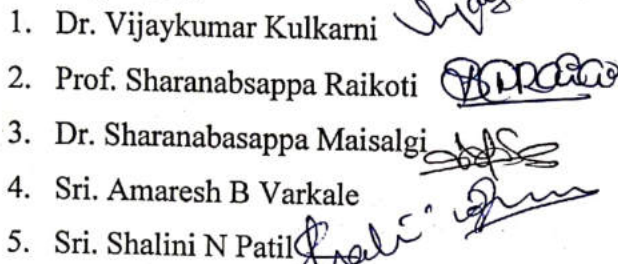 1. Dr. Vijaykumar Kulkarni
2. Prof. Sharanabsappa Raikoti
3. Dr. Sharanabasappa Maisalgi
4. Sri. Amaresh B Varkale
5. Sri. Shalini N Patil